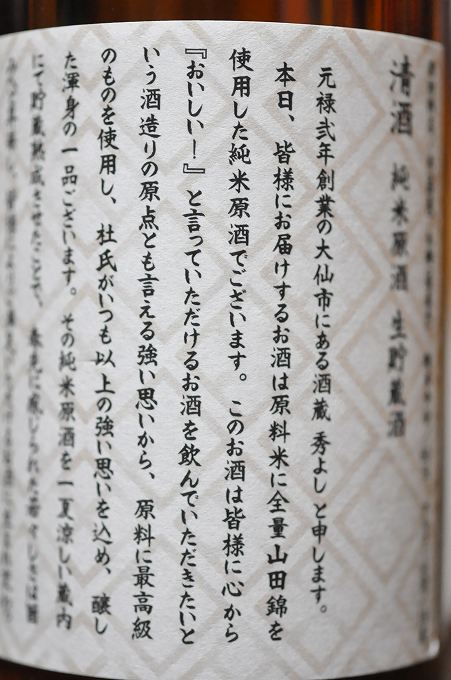 清酒 純米原酒 生貯蔵酒
元禄弐年創業の大仙市にある酒蔵 秀よし と申します。
本日、皆様にお届けするお酒は原料米に全量山田錦を
使用した純米原酒でございます。このお酒は皆様に心から
『おいしい！』と言っていただけるお酒を飲んでいただきたいと
いう酒造りの原点とも言える強い思いから、原料に最高級
のものを使用し、杜氏がいつも以上の強い思いを込め、醸し
た渾身の一品ございます。その純米原酒を一夏涼しい蔵内
にて貯蔵熟成させたことで、春先に感じられた若々しさは